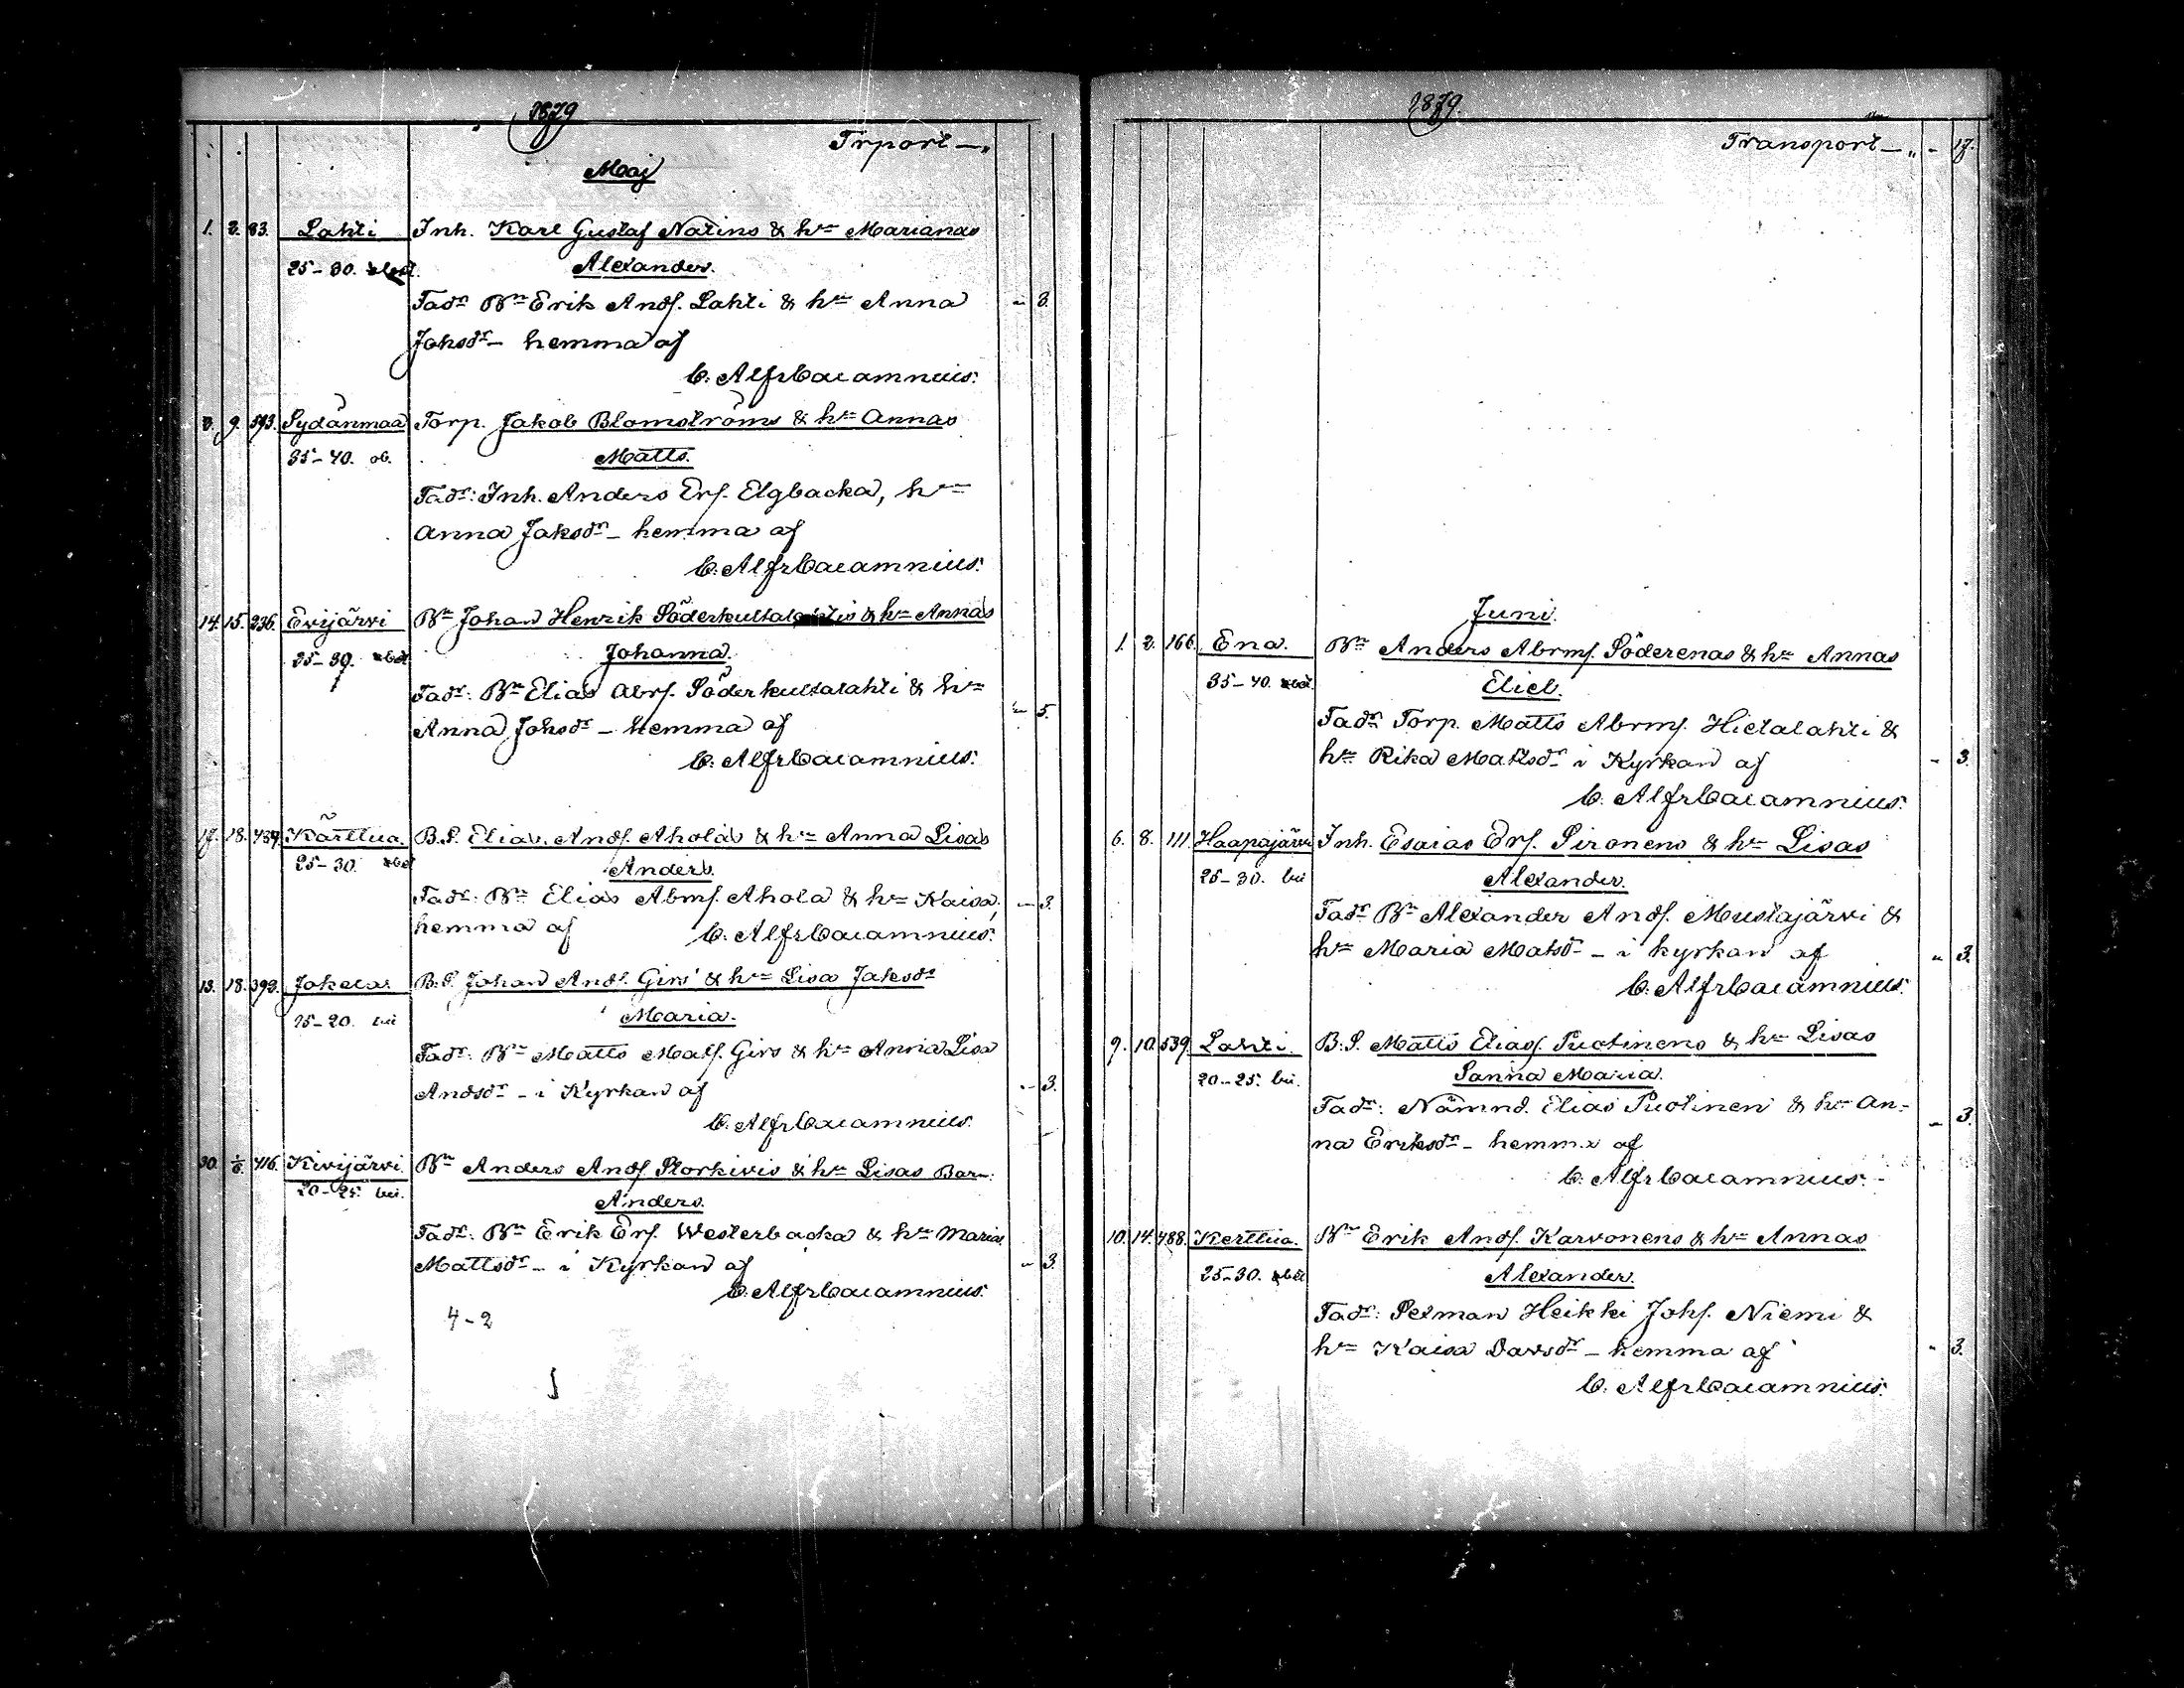 1879
Trport — „
Maj
1. 2. 83. Lahti Inh. Karl Gustaf Natins & hn Marianas
25-30. Alexander.
Fadr Bn Erik Andf. Lahti & hn Anna - 3.
Johsdr - hemma af
C. Alfr Cajamnius.
8. 9. 593. Sydänmaa Torp. Jakob Blomströms & hn Annas
35-40. ob. Matts.
Fadr: Inh. Anders Erf. Elgbacka, hn
Anna Jaksdr - hemma af
C. Alfr Cajamnius.
14. 15. 236. Evijärvi Bn Johan Henrik & hn Annas
35-39. Johanna.
Fadr: Bn Elias Abrf. Söderkultalahti & hn
Anna Johsdr - hemma af - 5.
C. Alfr Cajamnius.
17. 18. 439. Kärttua. B.S. Elias Andf. Aholas & hn Anna Lisas
25-30. Anders.
Fadr: Bn Elias Abmf. Ahola & hn Kaisa, - 3.
hemma af C. Alfr Cajamnius.
13. 18. 393. Jokela B.S. Johan Andf. Girs & hn Lisa Jaksdr
15-20. Maria.
Fadr: Bn Matts Matf. Girs & hn Anna Lisa
Andsdr - i Kyrkan af - 3.
C. Alfr Cajamnius.
30. 1/6. 416. Kivijärvi. Bn Anders Andf. Storkivis & hn Lisas Barn:
20-25. Anders.
Fadr: Bn Erik Erf. Westerbacka & hn Maria
Mattsdr - i Kyrkan af - 3.
C. Alfr Cajamnius.
4-2
1879.
Transport — „ - 17.
Juni.
1. 2. 166. Ena. Bn Anders Abrmf. Söderenas & hn Annas
35-40. Eliel.
Fadr Torp. Matts Abrmf. Hietalahti &
hn Rika Matsdr i Kyrkan af - 3.
C. Alfr Cajamnius.
6. 8. 111. Haapajärvi Inh. Esaias Erf. Sironens & hn Lisas
25-30. Alexander.
Fadr Bn Alexander Andf. Mustajärvi &
hn Maria Matsd - i kyrkan af - 3.
C. Alfr Cajamnius.
9. 10. 539. Lahti. B.S. Matts Eliasf. Puotinens & hn Lisas
20-25. Sanna Maria.
Fadr: Nämnd. Elias Puotinen & hn An- - 3.
na Eriksdr - hemma af
C. Alfr Cajamnius.
10. 14. 488. Kerttua. Bn Erik Andf. Karvonens & hn Annas
25-30. Alexander.
Fadr: Sexman Heikki Johf. Niemi &
hn Kaisa Davsdr - hemma af - 3.
C. Alfr Cajamnius.